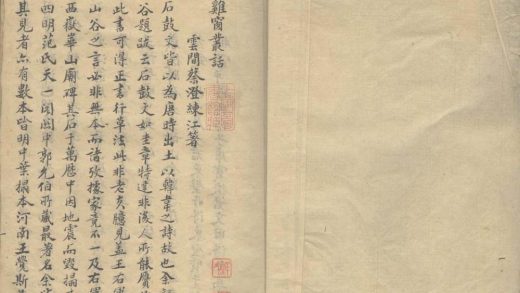 雞窗叢話
雲間蔡澄練江著
石鼓文皆以為唐時出土以韓韋之詩故也余
谷題跋云石鼓文如圭章特達非淺人所能贗
此書可得正書行草法此非老夫臆見蓋王右軍
山谷之言必非無本而諸攷據家竟不一及右軍
西嶽華山廟碑其石千萬歷中因地震而毀搨
四明范氏天一閣關中郭允伯所藏最著名余
其見者亦有數本皆明中葉搨本河南王覺斯